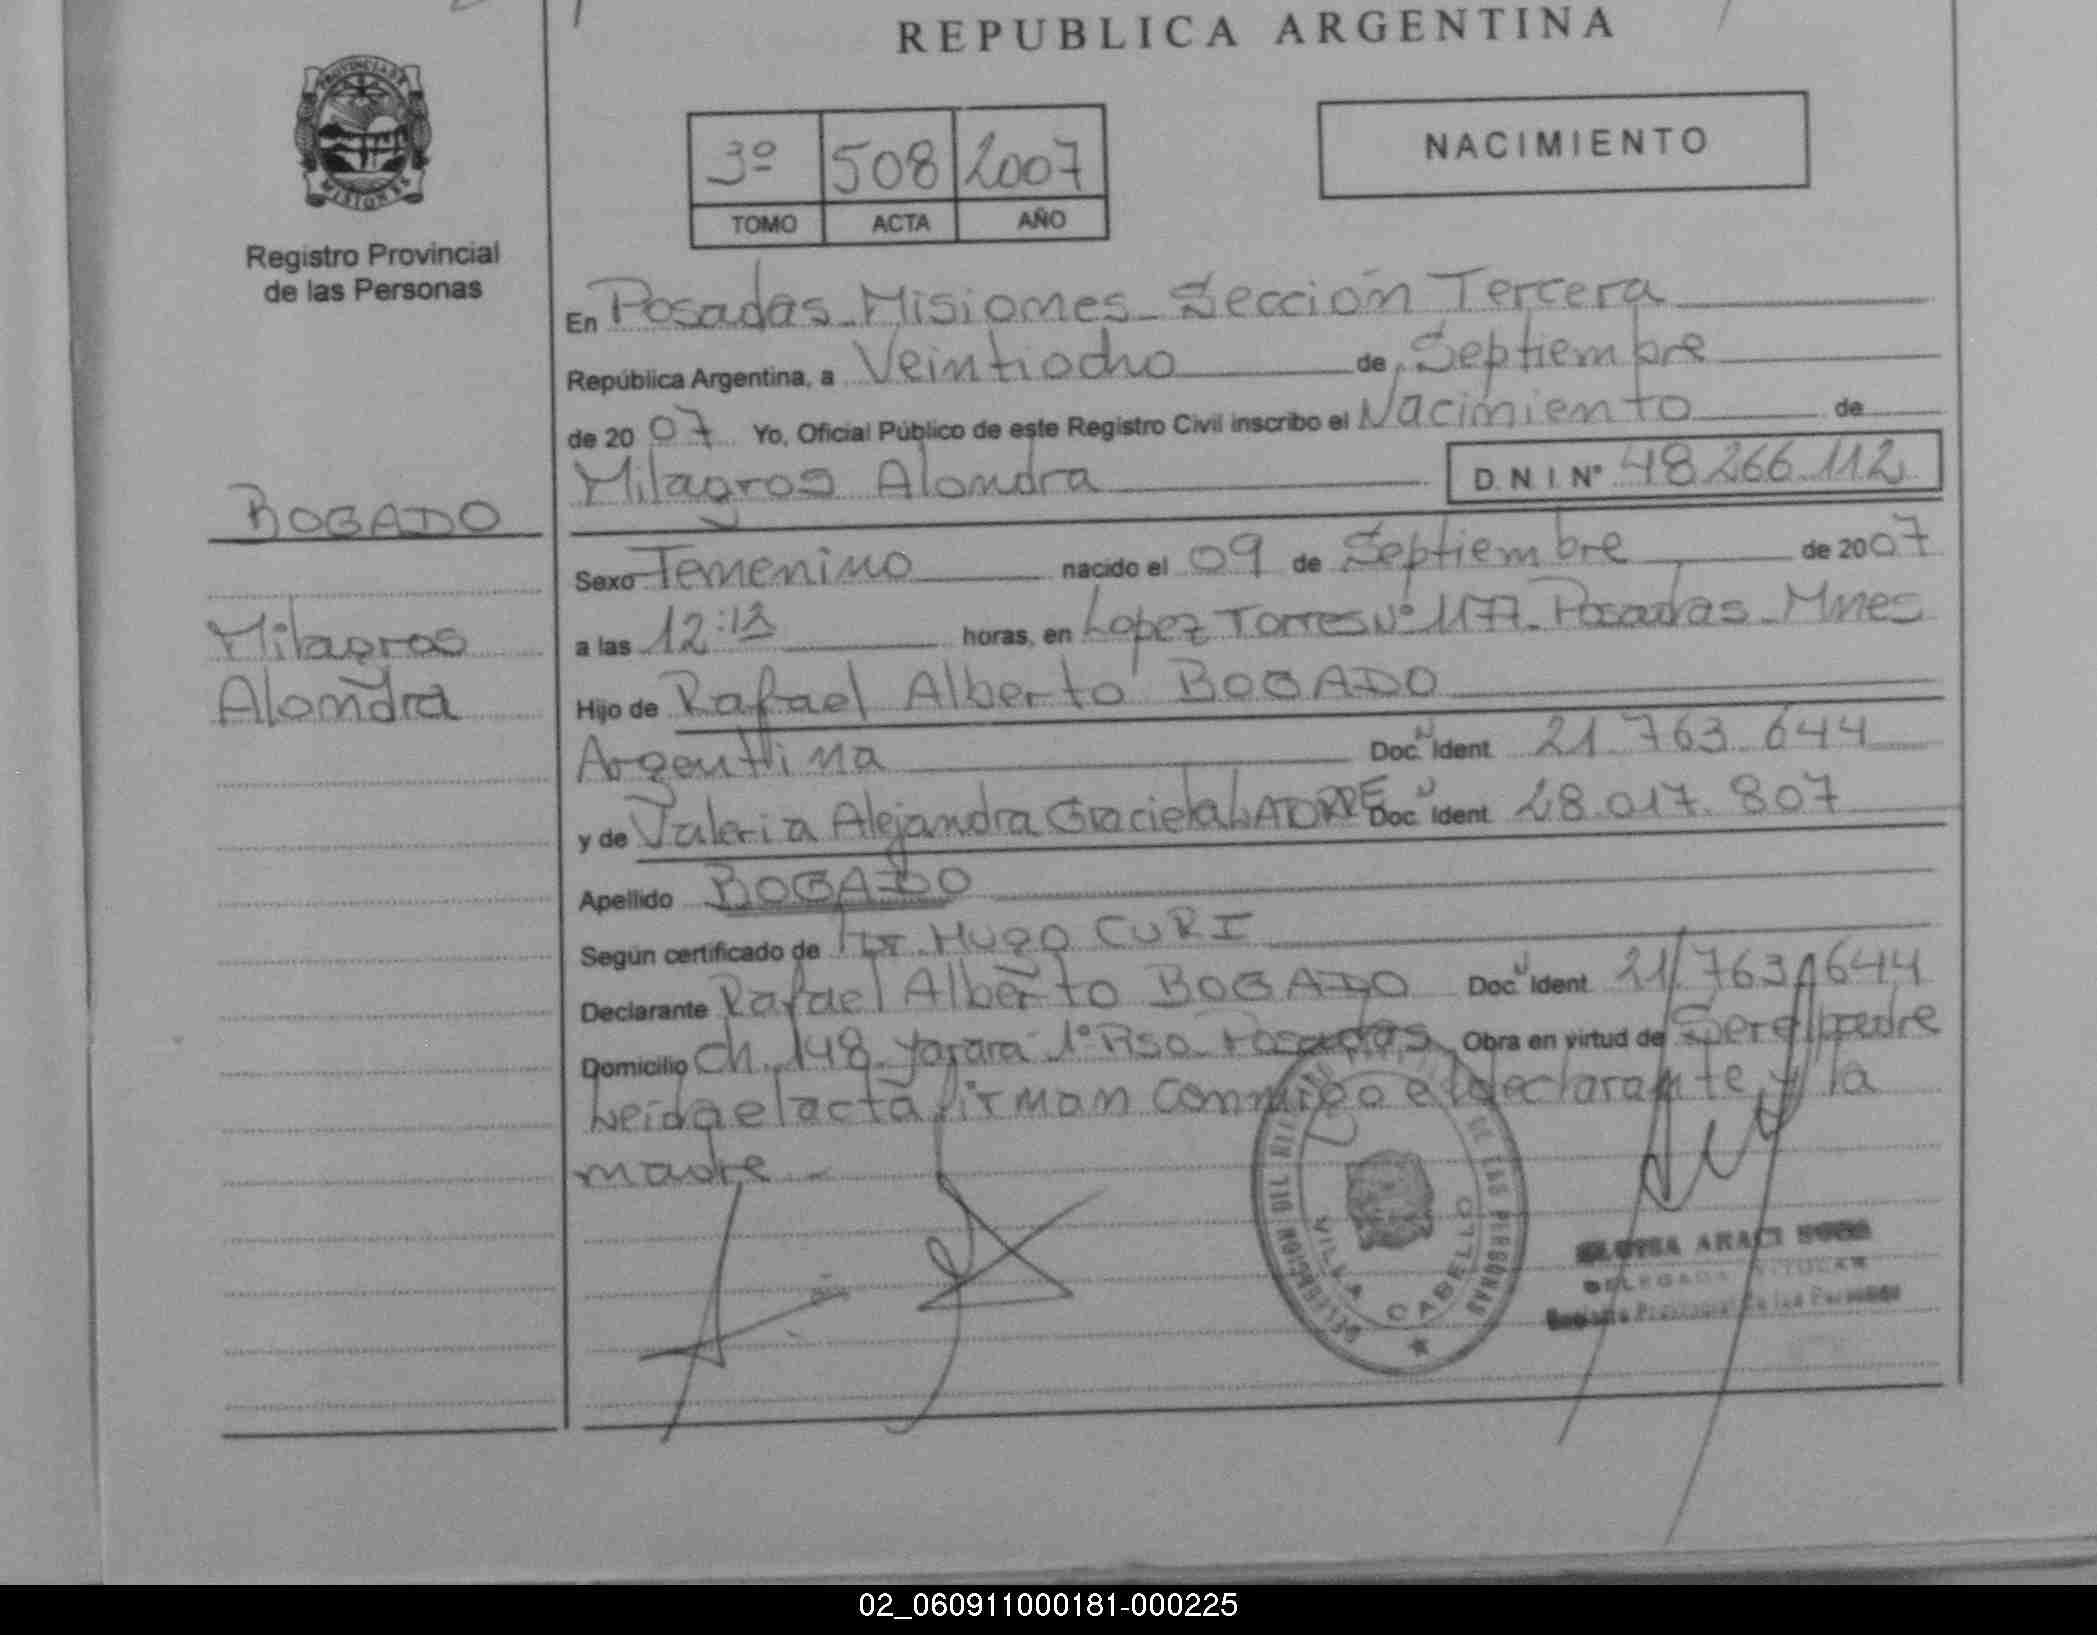 REPUBLICA ARGENTINA
PROVINCIA DE
MISIONES
Registro Provincial
de las Personas
3º 508 2007
TOMO ACTA AÑO
NACIMIENTO
En Posadas-Misiones-Sección Tercera
República Argentina, a Veintiocho de Septiembre
de 2007 Yo, Oficial Público de este Registro Civil inscribo el Nacimiento de
Milagros Alondra D.N.I Nº 48.266.112
BOGADO
Milagros
Alondra
Sexo Femenino nacido el 09 de Septiembre de 2007
a las 12:13 horas, en Lopez Torres Nº 1177-Posadas-Mnes
Hijo de Rafael Alberto BOGADO
Argentina Doc. Ident. 21.763.644
y de Valeria Alejandra Graciela Doc. Ident. 28.017.807
Apellido BOGADO
Según certificado de Dr. Hugo CURI
Declarante Rafael Alberto BOGADO Doc. Ident. 21.763.644
Domicilio Ch. 148 Yarara 1º Piso Posadas Obra en virtud de Ser el padre
Leida el acta firman conmigo el declarante y la
madre.-
DELEGACION DEL REGISTRO DE LAS PERSONAS
VILLA CABELLO
ARACI
DELEGADA TITULAR
Registro Provincial de las Personas
02_060911000181-000225